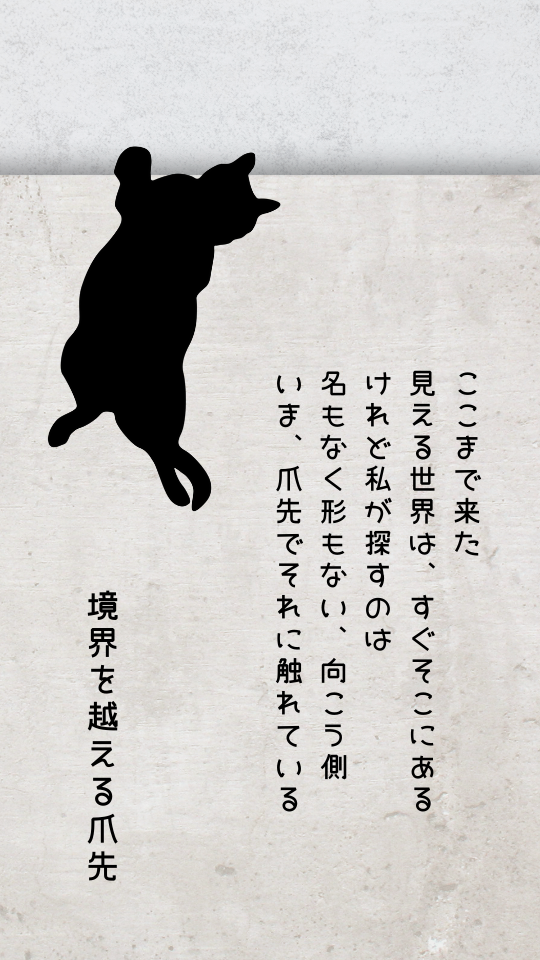 ここまで来た
見える世界は、すぐそこにある
けれど私が探すのは
名もなく形もない、向こう側
いま、爪先でそれに触れている
境界を越える爪先